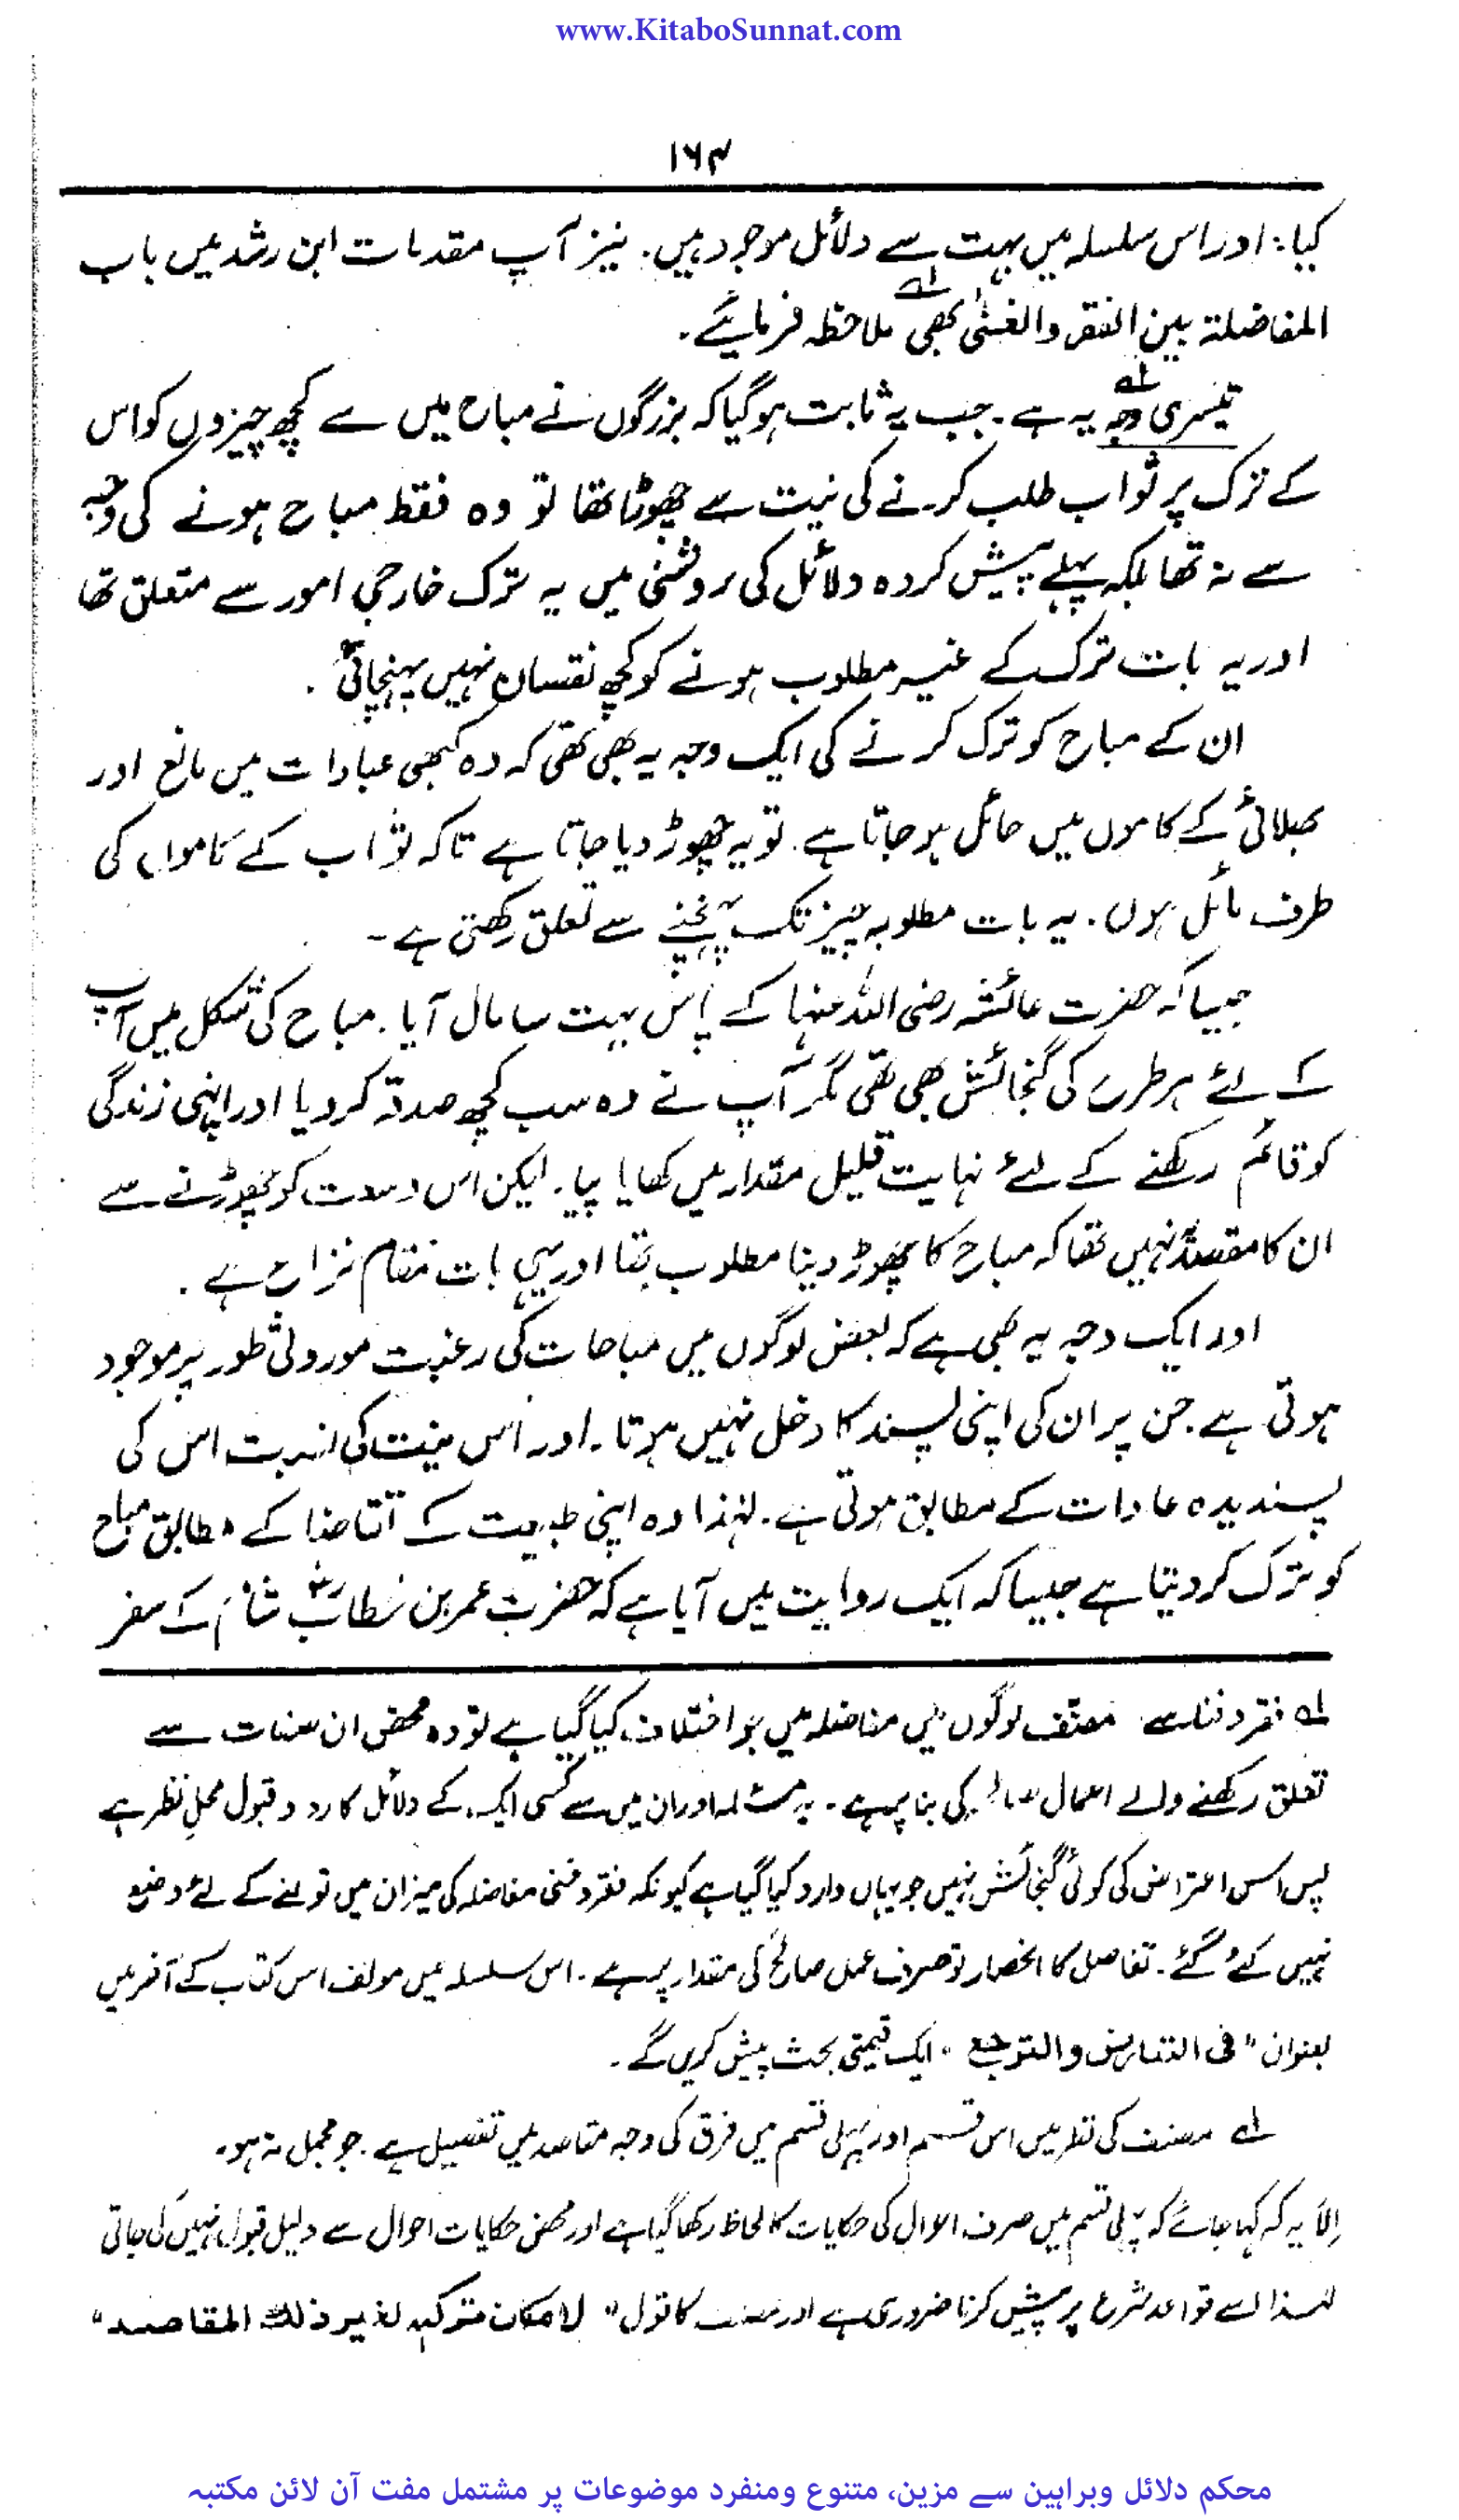 www.KitaboSunnat.com
۱۶۴
کیا: اور اس سلسلہ میں بہت سے دلائل موجود ہیں. نیز آپ مقدمات ابن رشد میں باب
المفاضلۃ بین الفقر والغنٰی لہ بھی ملاحظہ فرمایئے.
تیسری وجہ لہ یہ ہے. جب یہ ثابت ہوگیا کہ بزرگوں نے مباح میں سے کچھ چیزوں کو اس
کے ترک پر ثواب طلب کرنے کی نیت سے چھوڑا تھا تو وہ فقط مباح ہونے کی وجہ
سے نہ تھا بلکہ پہلے پیش کردہ دلائل کی روشنی میں یہ ترک خارجی امور سے متعلق تھا
اور یہ بات ترک کے غیر مطلوب ہونے کو کچھ نقصان نہیں پہنچاتی.
ان کے مباح کو ترک کرنے کی ایک وجہ یہ بھی تھی کہ وہ کبھی عبادات میں مانع اور
بھلائی کے کاموں میں حائل ہو جاتا ہے. تو یہ چھوڑ دیا جاتا ہے تاکہ ثواب کے کاموں کی
طرف مائل ہوں. یہ بات مطلوبہ چیز تک پہنچنے سے تعلق رکھتی ہے ۔
جیسا کہ حضرت عائشہ رضی اللہ عنہا کے پاس بہت سا مال آیا. مباح کی شکل میں آپ
کے لئے ہر طرح کی گنجائش بھی تھی مگر آپ نے وہ سب کچھ صدقہ کر دیا اور اپنی زندگی
کو قائم رکھنے کے لئے نہایت قلیل مقدار میں کھایا پیا. لیکن اس وسعت کو چھوڑنے سے
ان کا مقصد نہیں تھا کہ مباح کا چھوڑ دینا مطلوب تھا اور یہی بات مقام نزاع ہے.
اور ایک وجہ یہ بھی ہے کہ بعض لوگوں میں مباحات کی رغبت موروثی طور پر موجود
ہوتی ہے. جن پر ان کی اپنی پسند کا دخل نہیں ہوتا. اور اس نیت کی نسبت اس کی
پسندیدہ عادات کے مطابق ہوتی ہے. لہٰذا وہ اپنی طبیعت کے تقاضا کے مطابق مباح
کو ترک کر دیتا ہے جیسا کہ ایک روایت میں آیا ہے کہ حضرت عمر بن خطابؓ شام کے سفر
لہ فقر و غنا سے متصف لوگوں میں مفاضلہ میں جو اختلاف کیا گیا ہے تو وہ محض ان صفات سے
تعلق رکھنے والے اعمال صالحہ کی بنا پر ہے. یہ مسئلہ اور ان میں سے کسی ایک کے دلائل کا رد و قبول محلِ نظر ہے
پس اس اعتراض کی کوئی گنجائش نہیں جو یہاں وارد کیا گیا ہے کیونکہ فقر و غنٰی مفاضلہ کی میزان میں تولنے کے لئے وضع
نہیں کئے گئے. تفاصل کا انحصار تو صرف عمل صالح کی مقدار پر ہے. اس سلسلہ میں مولف اس کتاب کے آخر میں
بعنوان "فی التعارض والترجیع" ایک قیمتی بحث پیش کریں گے.
لہ مصنف کی نظر میں اس قسم اور پہلی قسم میں فرق کی وجہ مقاصد میں تفصیل ہے. جو مجمل نہ ہو.
اِلّا یہ کہ کہا جائے کہ پہلی قسم میں صرف احوال کی حکایات کا لحاظ رکھا گیا ہے اور محض حکایات احوال سے دلیل قبول نہیں کی جاتی
لہٰذا اسے قواعد شرع پر پیش کرنا ضروری ہے اور مصنف کا قول "لامکان ترکہ لغیر ذلک المقاصد"
محکم دلائل وبراہین سے مزین، متنوع ومنفرد موضوعات پر مشتمل مفت آن لائن مکتبہ